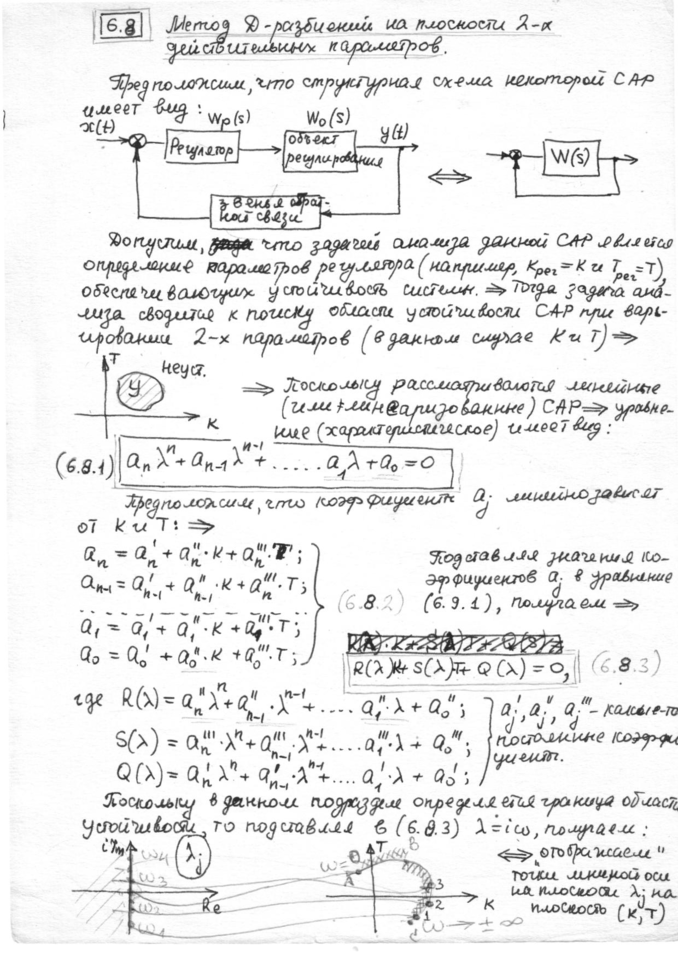 6.8 Метод D-разбиений на плоскости 2-х
действительных параметров.
Предположим, что структурная схема некоторой САР
имеет вид:
x(t) Wp(s) Wo(s) y(t)
Регулятор
объект
регулирования
W(s)
звенья обрат-
ной связи
Допустим, что задачей анализа данной САР является
определение параметров регулятора (например, Kрег=K и Tрег=T),
обеспечивающих устойчивость системы. ⇒ Тогда задача ана-
лиза сводится к поиску области устойчивости САР при варь-
ировании 2-х параметров (в данном случае K и T) ⇒
T неуст.
У
K
⇒ Поскольку рассматриваются линейные
(или линеаризованные) САР ⇒ уравне-
ние (характеристическое) имеет вид:
(6.8.1) aₙλⁿ + aₙ₋₁λⁿ⁻¹ + ..... a₁λ + a₀ = 0
Предположим, что коэффициенты aⱼ линейно зависят
от K и T: ⇒
aₙ = aₙ' + aₙ''·K + aₙ'''·T;
aₙ₋₁ = aₙ₋₁' + aₙ₋₁''·K + aₙ₋₁'''·T;
a₁ = a₁' + a₁''·K + a₁'''·T;
a₀ = a₀' + a₀''·K + a₀'''·T;
(6.8.2)
Подставляя значения ко-
эффициентов aⱼ в уравнение
(6.9.1), получаем ⇒
R(λ)K + S(λ)T + Q(λ) = 0, (6.8.3)
где R(λ) = aₙ''λⁿ + aₙ₋₁''·λⁿ⁻¹ + .... a₁''·λ + a₀'';
S(λ) = aₙ'''·λⁿ + aₙ₋₁'''·λⁿ⁻¹ + .... a₁'''·λ + a₀''';
Q(λ) = aₙ'λⁿ + aₙ₋₁'·λⁿ⁻¹ + .... a₁'·λ + a₀';
aⱼ', aⱼ'', aⱼ''' – какие-то
постоянные коэффи-
циенты.
Поскольку в данном подразделе определяется граница области
устойчивости, то подставляя в (6.8.3) λ=iω, получаем:
iIm λⱼ
ω4
ω3
ω2
ω1
Re
ω=0 T
A B
3
2
1
C
K
ω→±∞
⇔ „отображаем"
точки мнимой оси
на плоскости λⱼ на
плоскость (K,T)